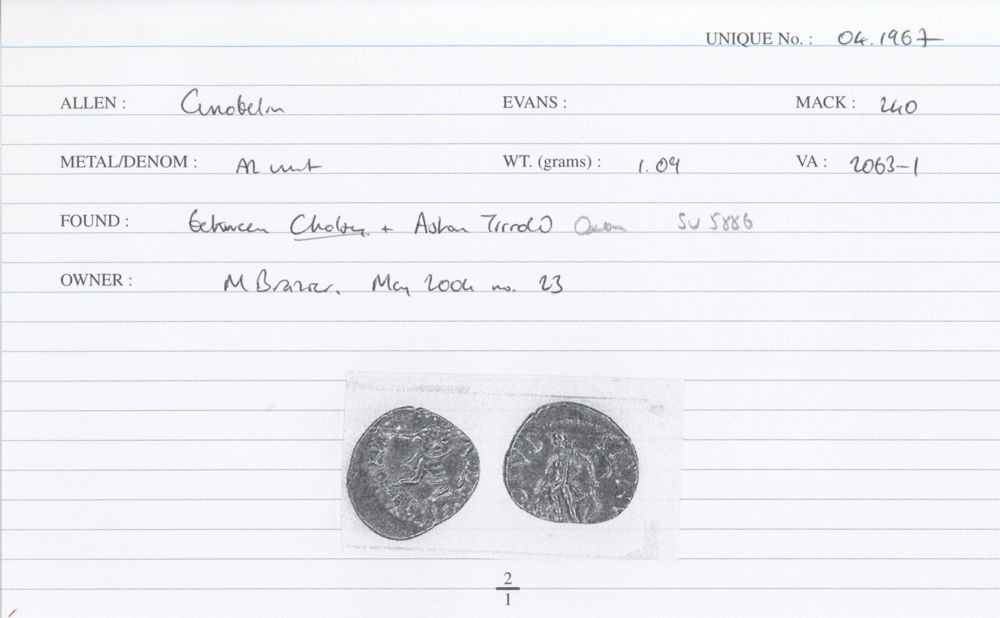 UNIQUE No. : 04.1967
ALLEN : Cunobelin EVANS : MACK : 240
METAL/DENOM : AR unit WT. (grams) : 1.09 VA : 2063-1
FOUND : between Cholsey + Aston Tirrold Oxon SU 5886
OWNER : M Brazier. May 2004 no. 23
2
1